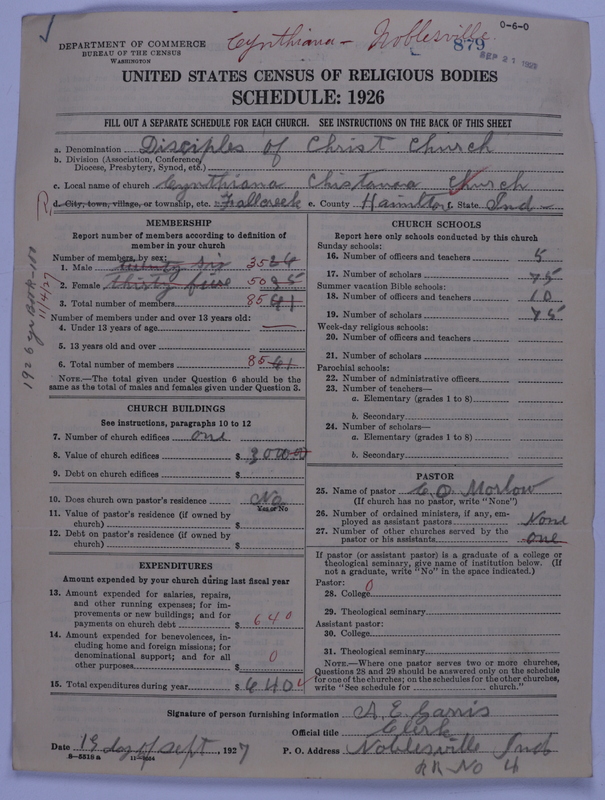 0-6-0
Cynthiana - Noblesville
879
SEP 21 1927
DEPARTMENT OF COMMERCE
BUREAU OF THE CENSUS
WASHINGTON
UNITED STATES CENSUS OF RELIGIOUS BODIES
SCHEDULE: 1926
FILL OUT A SEPARATE SCHEDULE FOR EACH CHURCH. SEE INSTRUCTIONS ON THE BACK OF THIS SHEET
a. Denomination Disciples of Christ Church
b. Division (Association, Conference, Diocese, Presbytery, Synod, etc.)
c. Local name of church Cynthiana Chistanaa Church
R d. City, town, village, or township, etc. Fallcreek e. County Hamilton f. State Ind -
MEMBERSHIP
Report number of members according to definition of member in your church
Number of members, by sex:
1. Male twenty six 35 26
2. Female thirty five 50 35
3. Total number of members 85 61
Number of members under and over 13 years old:
4. Under 13 years of age —
5. 13 years old and over
6. Total number of members 85 61
NOTE.—The total given under Question 6 should be the same as the total of males and females given under Question 3.
CHURCH BUILDINGS
See instructions, paragraphs 10 to 12
7. Number of church edifices one
8. Value of church edifices $ 3000
9. Debt on church edifices $
10. Does church own pastor's residence No
Yes or No
11. Value of pastor's residence (if owned by church) $
12. Debt on pastor's residence (if owned by church) $
EXPENDITURES
Amount expended by your church during last fiscal year
13. Amount expended for salaries, repairs, and other running expenses; for improvements or new buildings; and for payments on church debt $ 640
14. Amount expended for benevolences, including home and foreign missions; for denominational support; and for all other purposes $ 0
15. Total expenditures during year $ 640
CHURCH SCHOOLS
Report here only schools conducted by this church
Sunday schools:
16. Number of officers and teachers 5
17. Number of scholars 75
Summer vacation Bible schools:
18. Number of officers and teachers 10
19. Number of scholars 75
Week-day religious schools:
20. Number of officers and teachers
21. Number of scholars
Parochial schools:
22. Number of administrative officers
23. Number of teachers—
a. Elementary (grades 1 to 8)
b. Secondary
24. Number of scholars—
a. Elementary (grades 1 to 8)
b. Secondary
PASTOR
25. Name of pastor C. O. Morlow
(If church has no pastor, write "None")
26. Number of ordained ministers, if any, employed as assistant pastors None
27. Number of other churches served by the pastor or his assistants one
If pastor (or assistant pastor) is a graduate of a college or theological seminary, give name of institution below. (If not a graduate, write "No" in the space indicated.)
Pastor:
28. College 0
29. Theological seminary
Assistant pastor:
30. College
31. Theological seminary
NOTE.—Where one pastor serves two or more churches, Questions 28 and 29 should be answered only on the schedule for one of the churches; on the schedules for the other churches, write "See schedule for church."
Signature of person furnishing information A. E. Carris
Official title Clerk
Date 19 day of Sept, 1927 P. O. Address Noblesville Ind
RR No 4
8-5519 a